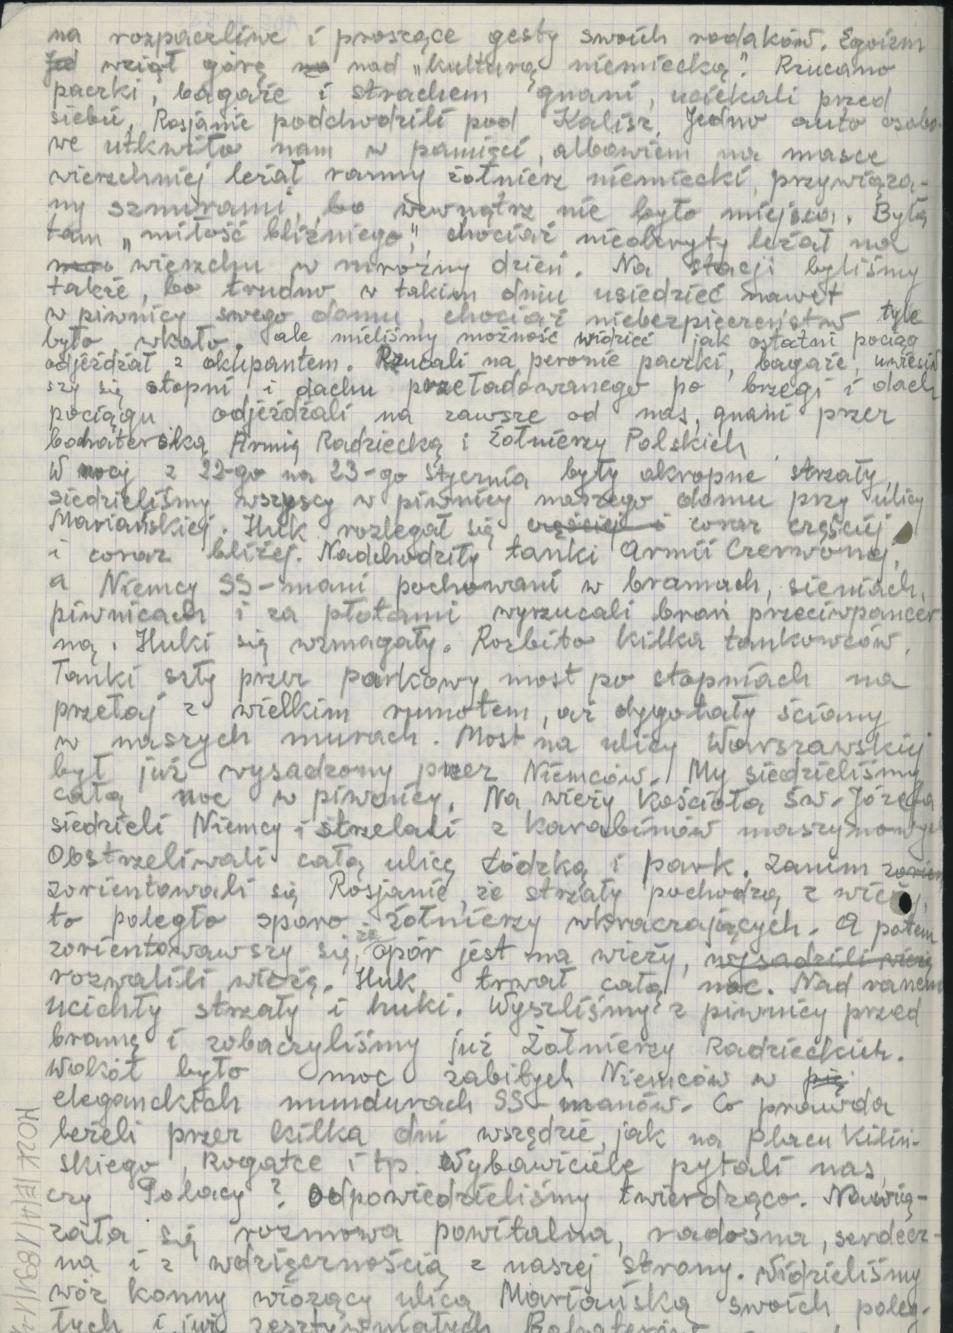 na rozpaczliwe i proszące gesty swoich rodaków. Egoizm
wziął górę nad „kulturą niemiecką". Rzucano
paczki, bagaże i strachem gnani, uciekali przed
siebie, Rosjanie podchodzili pod Kalisz. Jedno auto osobo-
we utkwiło nam w pamięci, albowiem na masce
wierzchniej leżał ranny żołnierz niemiecki, przywiąza-
ny sznurami, bo wewnątrz nie było miejsca. Była
tam „miłość bliźniego", chociaż nieokryty leżał na
wierzchu w mroźny dzień. Na stacji byliśmy
także, bo trudno w takim dniu usiedzieć nawet
w piwnicy swego domu, chociaż niebezpieczeństw tyle
było wkoło. ale mieliśmy możność widzieć jak ostatni pociąg
odjeżdżał z okupantem. Rzucali na peronie paczki, bagaże, uwiesi
szy się stopni i dachu przeładowanego po brzegi i dach
pociągu odjeżdżali na zawsze od nas, gnani przez
bohaterską Armię Radziecką i Żołnierzy Polskich
W nocy z 22-go na 23-go stycznia były okropne strzały,
siedzieliśmy wszyscy w piwnicy naszego domu przy ulicy
Mariańskiej. Huk rozlegał się częściej i coraz częściej
i coraz bliżej. Nadchodziły tanki Armii Czerwonej,
a Niemcy SS-mani pochowani w bramach, sieniach,
piwnicach i za płotami wyrzucali broń przeciwpancer
ną. Huki się wzmagały. Rozbito kilka tankowców.
Tanki szły przez parkowy most po stopniach na
przełaj z wielkim rumotem, aż dygotały ściany
w naszych murach. Most na ulicy Warszawskiej
był już wysadzony przez Niemców. My siedzieliśmy
całą noc w piwnicy. Na wieży Kościoła św. Józefa
siedzieli Niemcy i strzelali z karabinów maszynowych
Obstrzeliwali całą ulicę Łódzką i park. Zanim zorien
zorientowali się Rosjanie, że strzały pochodzą z wieży,
to poległo sporo żołnierzy wkraczających. A potem
zorientowawszy się, że opór jest na wieży, wysadzili wieżę
rozwalili wieżę. Huk trwał całą noc. Nad ranem
ucichły strzały i huki. Wyszliśmy z piwnicy przed
bramę i zobaczyliśmy już Żołnierzy Radzieckich.
Wokół było moc zabitych Niemców w
eleganckich mundurach SS-manów. Co prawda
leżeli przez kilka dni wszędzie, jak na Placu Kiliń-
skiego, Rogatce i tp. Wybawiciele pytali nas,
czy Polacy? Odpowiedzieliśmy twierdząco. Nawią-
zała się rozmowa powitalna, radosna, serdecz-
na i z wdzięcznością z naszej strony. Widzieliśmy
wóz konny wiozący ulicą Mariańską swoich poleg-
łych i już zesztywniałych Bohaterów